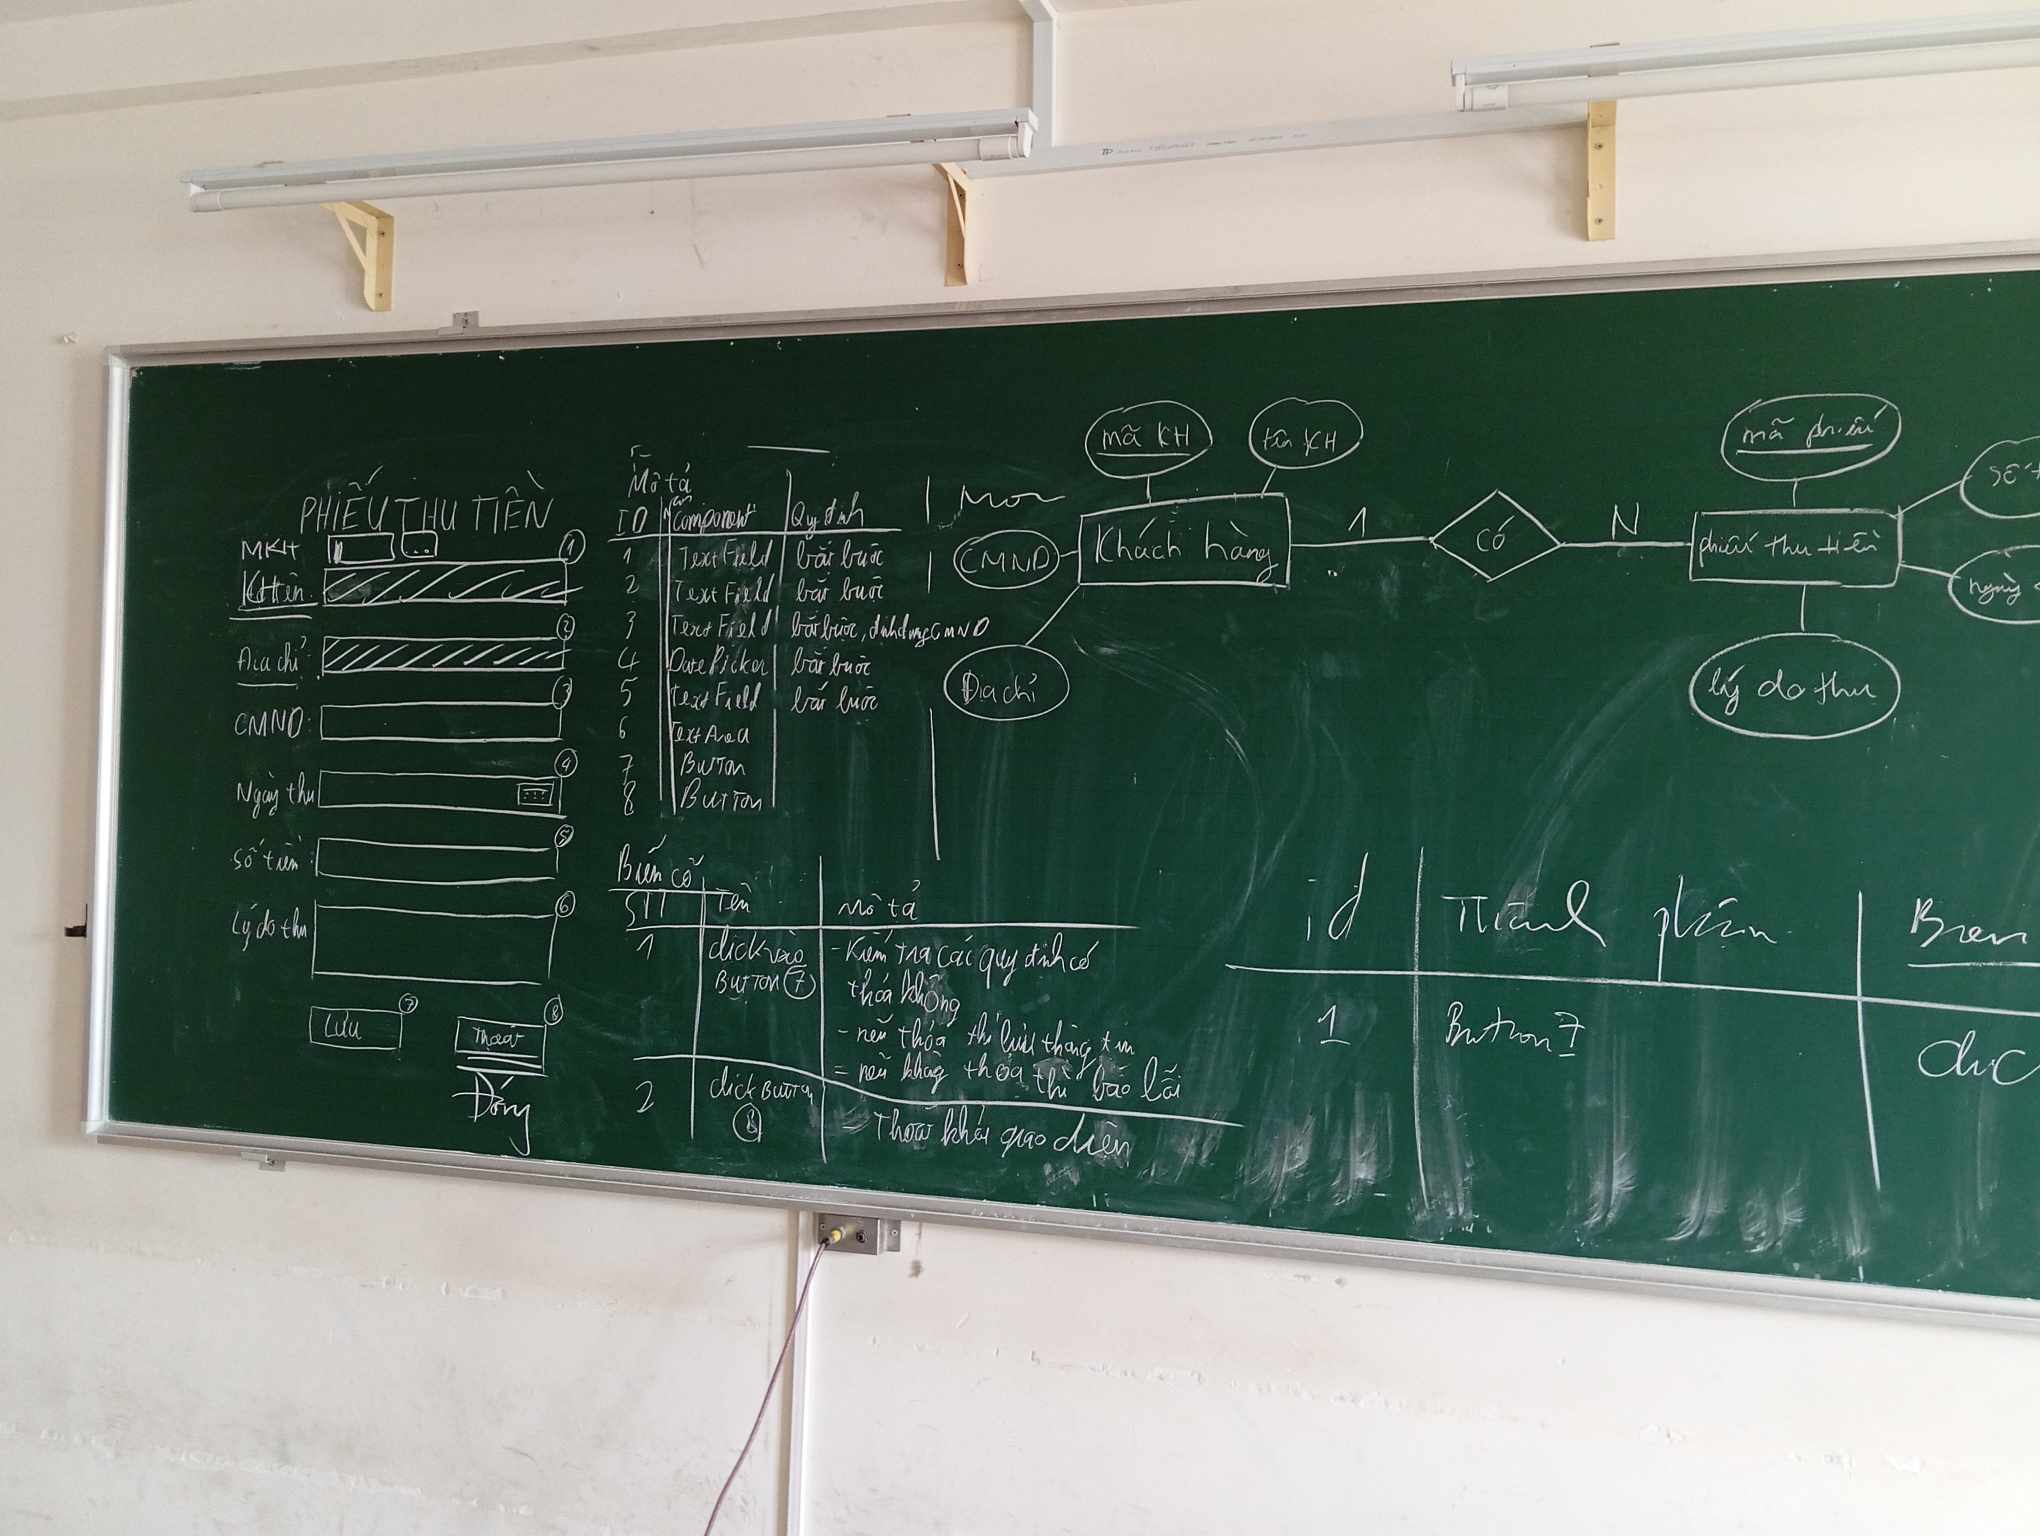 PHIẾU THU TIỀN
MKH ...
KH tên: 1
Địa chỉ: 2
CMND: 3
Ngày thu 4
Số tiền: 5
Lý do thu 6
Lưu 7
Thoát 8
Đóng
Mô tả
ID Component Quy định
1 TextField bắt buộc
2 TextField bắt buộc
3 TextField bắt buộc, định dạng CMND
4 DatePicker bắt buộc
5 TextField bắt buộc
6 TextArea
7 BUTTON
8 BUTTON
Biến cố
STT Tên Mô tả
1 click vào BUTTON 7
- Kiểm tra các quy định có
thỏa không
- nếu thỏa thì lưu thông tin
- nếu không thỏa thì báo lỗi
2 click BUTTON 8
- Thoát khỏi giao diện
mã KH
tên KH
CMND
Khách hàng
Địa chỉ
1
có
N
mã phiếu
phiếu thu tiền
số t
ngày
lý do thu
id Thành phần Biến
1 Button 7 clic